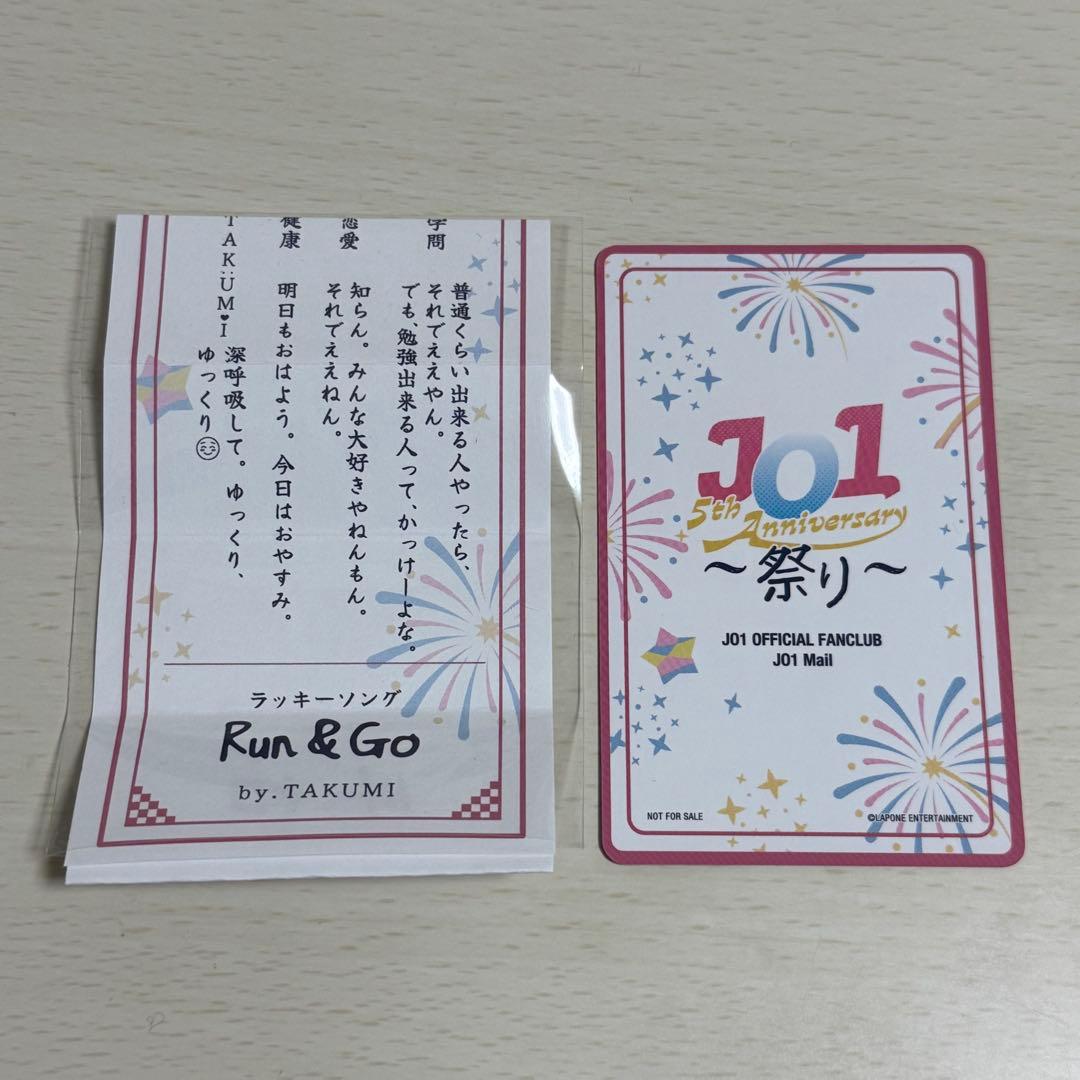 学問
普通くらい出来る人やったら、
それでええやん。
でも、勉強出来る人って、かっけーよな。
恋愛
知らん。みんな大好きやねんもん。
それでええねん。
健康
明日もおはよう。今日はおやすみ。
TAKUM♥I
深呼吸して。ゆっくり、
ゆっくり😌
ラッキーソング
Run & Go
by.TAKUMI
JO1
5th Anniversary
～祭り～
JO1 OFFICIAL FANCLUB
JO1 Mail
NOT FOR SALE
©LAPONE ENTERTAINMENT